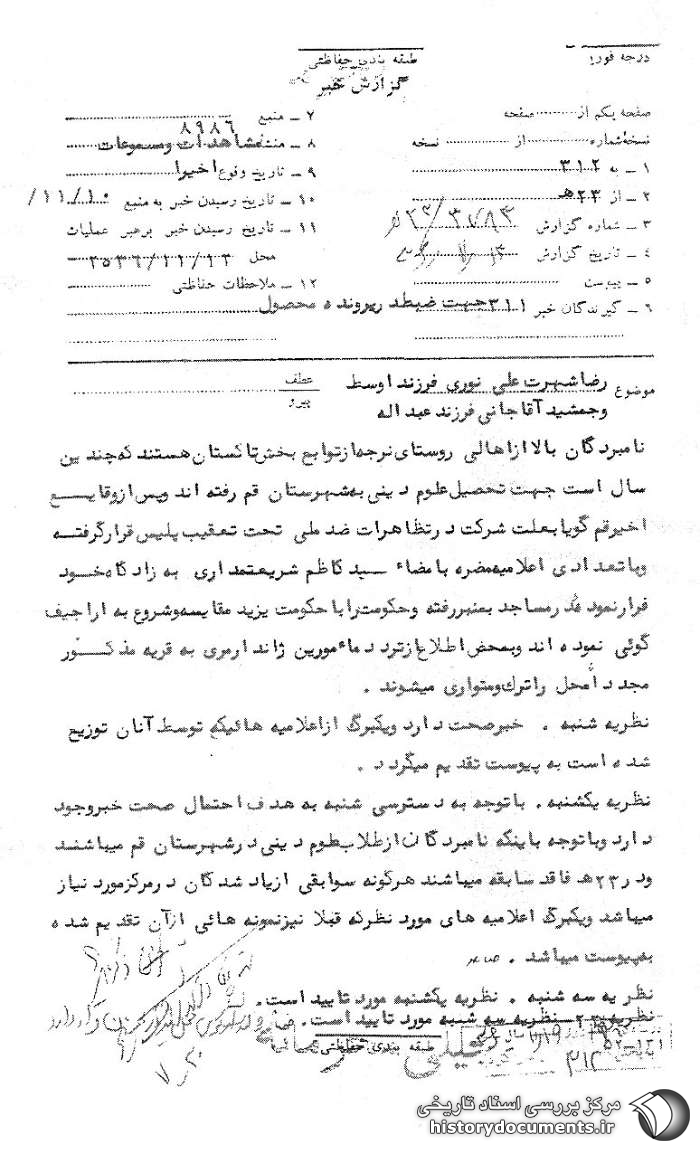 درجه فوریت
طبقه بندی حفاظتی
گزارش خبر
صفحه یکم از صفحه
نسخه شماره از نسخه
۱ ـ به ۳۱۲
۲ ـ از ۲۳هـ
۳ ـ شماره گزارش
۴ ـ تاریخ گزارش
۵ ـ پیوست
۶ ـ گیرندگان خبر ۳۱۱ جهت ضبط در پرونده محصول
۷ ـ منبع ۸۹۸۶
۸ ـ منشاء مشاهدات و مسموعات
۹ ـ تاریخ وقوع اخیرا
۱۰ ـ تاریخ رسیدن خبر به منبع ۱۱/۱۰/
۱۱ ـ تاریخ رسیدن خبر برهبر عملیات
محل ۲۵۳۶/۱۱/۱۲
۱۲ ـ ملاحظات حفاظتی
موضوع رضا شهرت علی نوری فرزند اوسط عطف
وجمشید آقاجانی فرزند عبداله پیرو
نامبردگان بالا از اهالی روستای نرجه از توابع بخش تاکستان هستند که چندین
سال است جهت تحصیل علوم دینی به شهرستان قم رفته اند وپس از وقایع
اخیر قم گویا بعلت شرکت در تظاهرات ضد ملی تحت تعقیب پلیس قرار گرفته
وبا تعدادی اعلامیه مضره با مضاء سید کاظم شریعتمداری به زادگاه خود
فرار نموده در مساجد بمنبر رفته وحکومت را با حکومت یزید مقایسه وشروع به اراجیف
گوئی نموده اند وبمحض اطلاع از تردد ماءمورین ژاندارمری به قریه مذکور
مجدداً محل را ترک ومتواری میشوند .
نظریه شنبه . خبر صحت دارد ویکبرگ از اعلامیه هائیکه توسط آنان توزیع
شده است به پیوست تقدیم میگردد .
نظریه یکشنبه . با توجه به دسترسی شنبه به هدف احتمال صحت خبر وجود
دارد وبا توجه باینکه نامبردگان از طلاب علوم دینی در شهرستان قم میباشند
ودر ۲۳هـ فاقد سابقه میباشند هرگونه سوابقی از یاد شدگان در مرکز مورد نیاز
میباشد ویکبرگ اعلامیه های مورد نظر که قبلا نیز نمونه هائی از آن تقدیم شده
به پیوست میباشد .
نظریه سه شنبه . نظریه یکشنبه مورد تایید است .
نظریه ۲۳ـ نظریه سه شنبه مورد تایید است .
طبقه بندی حفاظتی
۳۱۲
مرکز بررسی اسناد تاریخی
historydocuments.ir